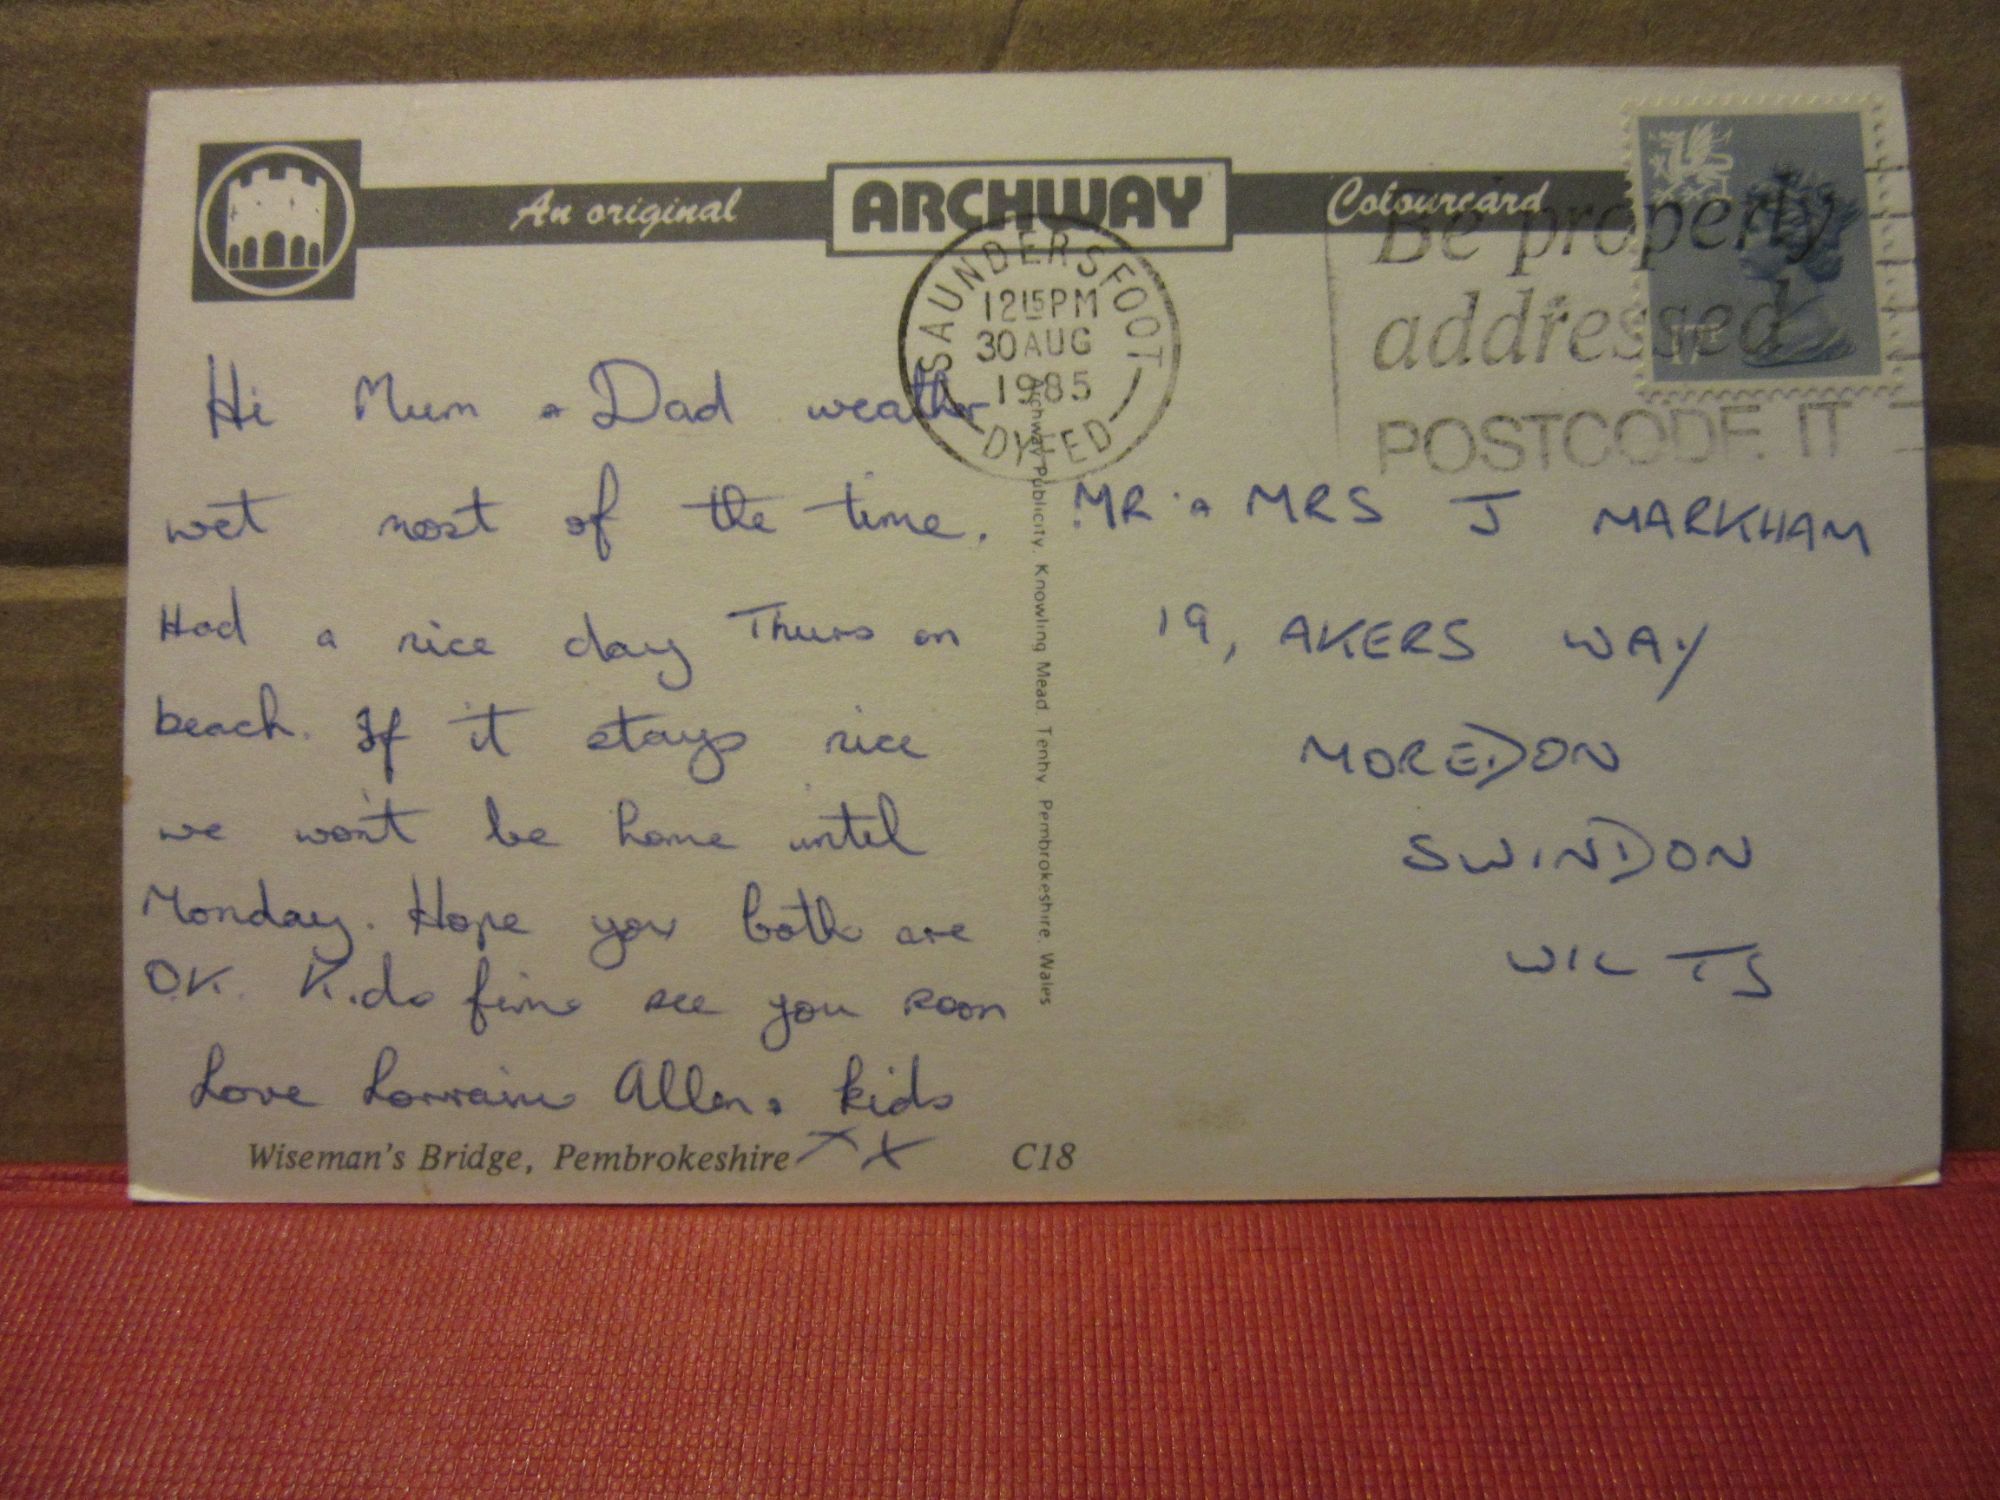 An original ARCHWAY Colourcard
SAUNDERSFOOT
1215PM
30 AUG
1985
DYFED
Be properly
addressed
POSTCODE IT
17P
Hi Mum & Dad weather
wet most of the time.
Had a nice day Thurs on
beach. If it stays nice
we won't be home until
Monday. Hope you both are
O.K. Kids fine see you soon
Love Lorraine Allan & kids
xx
MR & MRS J MARKHAM
19, AKERS WAY
MOREDON
SWINDON
WILTS
Archway Publicity, Knowling Mead, Tenby, Pembrokeshire, Wales
Wiseman's Bridge, Pembrokeshire C18